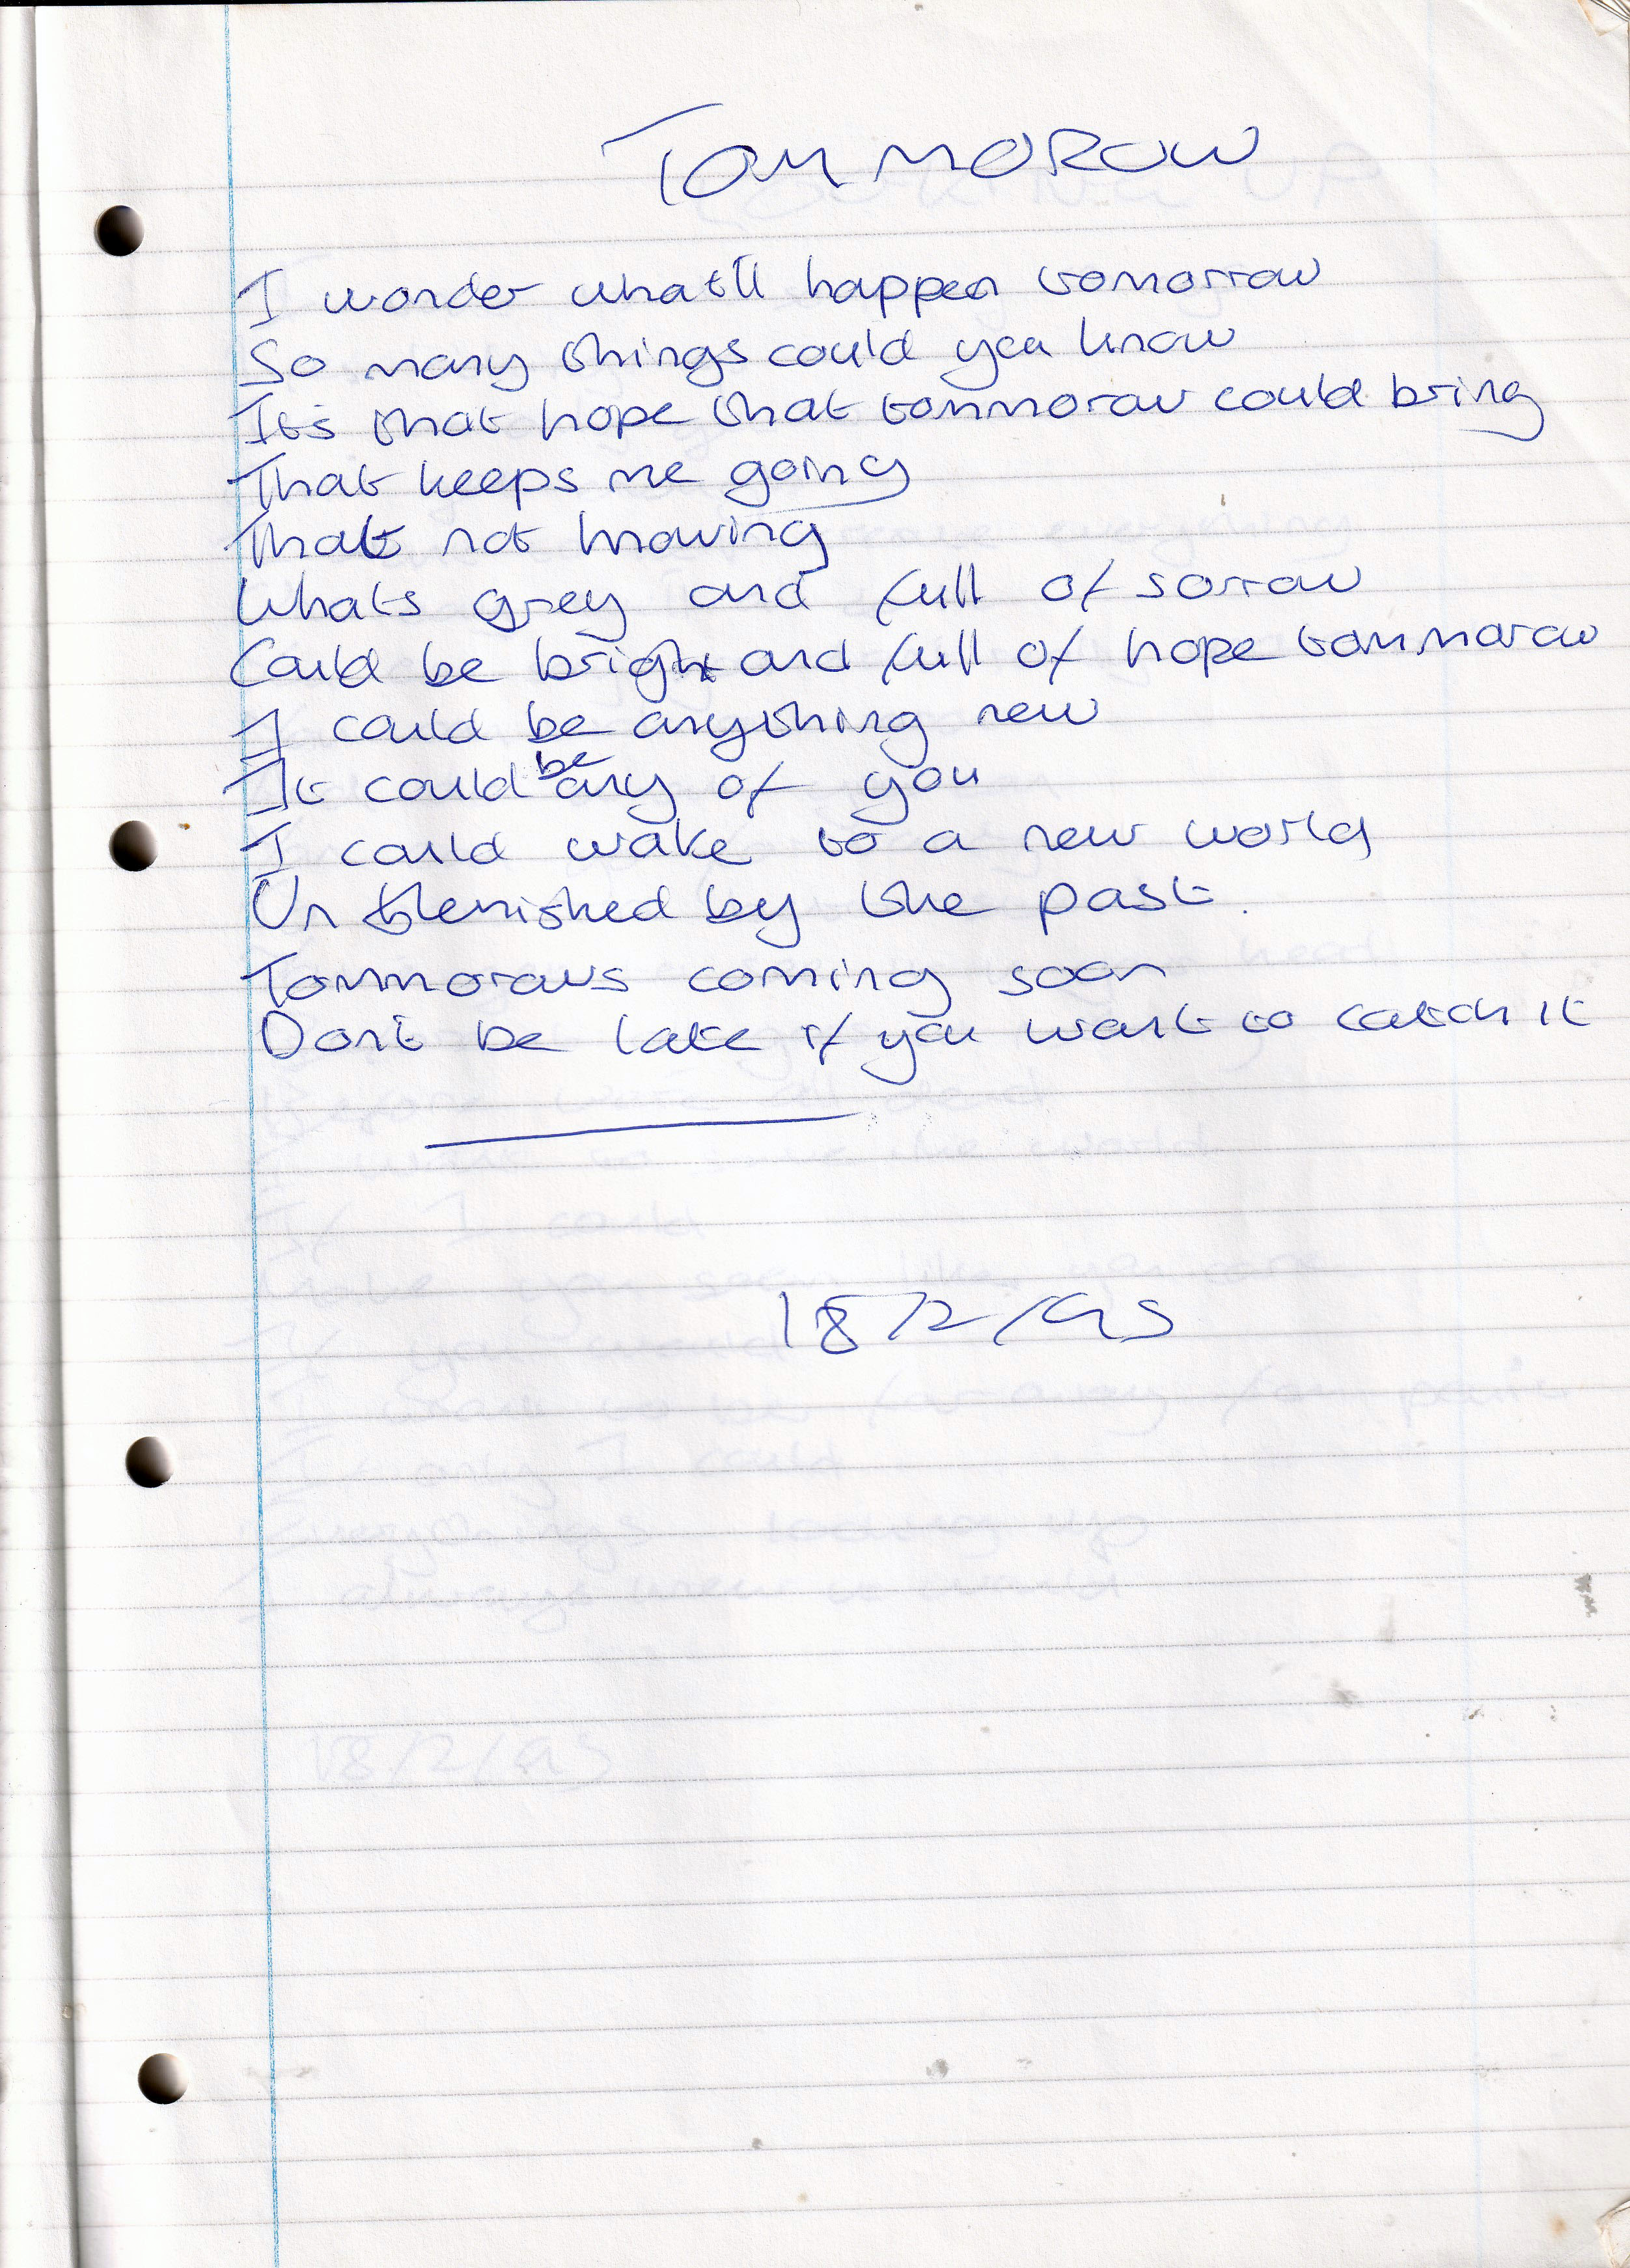 TOMMOROW
I wonder what'll happen tomorrow
So many things could you know
It's that hope that tommorow could bring
That keeps me going
That not knowing
Whats grey and full of sorrow
Could be bright and full of hope tommorow
I could be anything new
It could be any of you
I could wake to a new world
Un blemished by the past.
Tommorows coming soon
Don't be late if you want to catch it
18/2/95